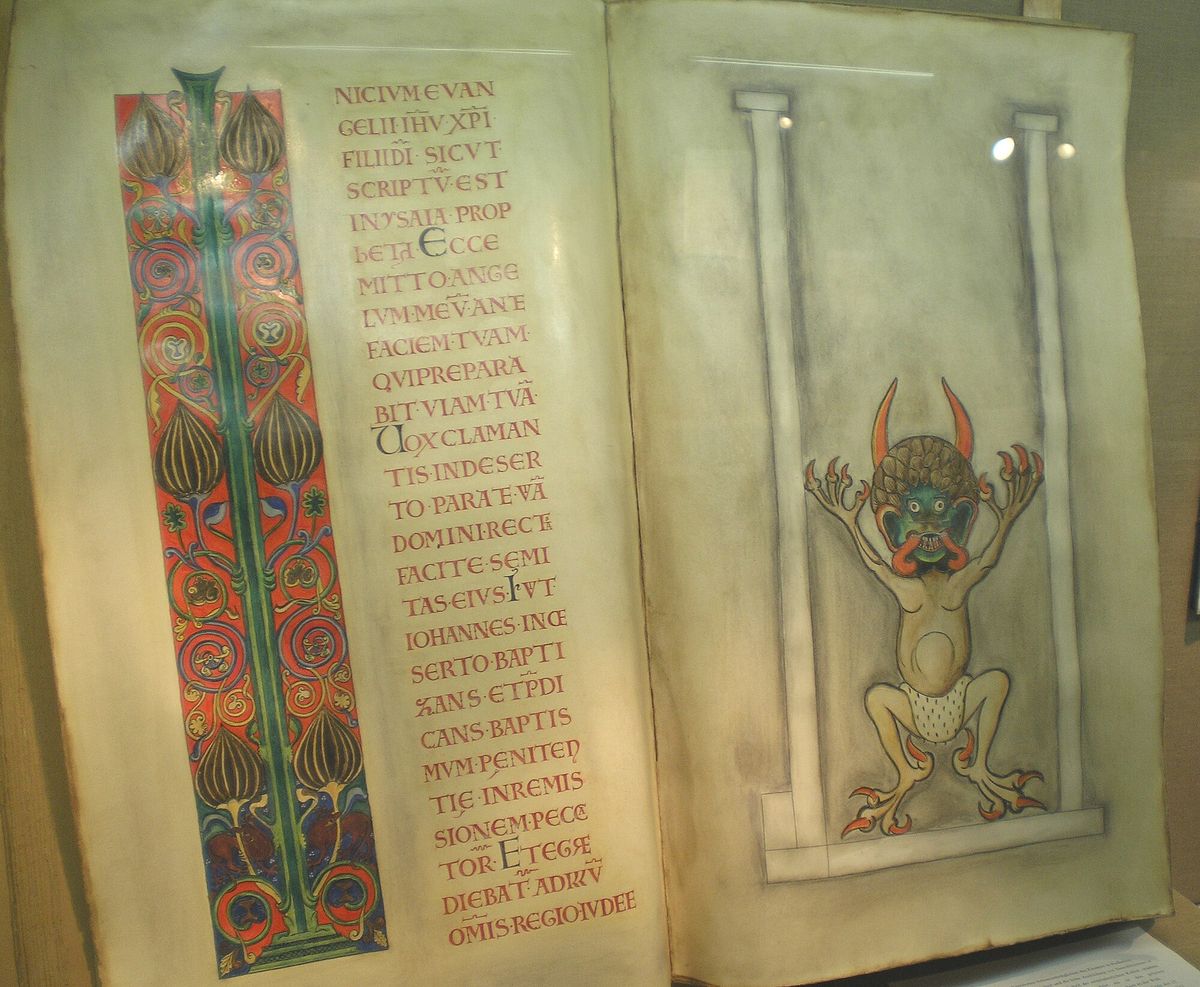 NICIVM EVAN
GELII IHV XPI
FILII DI SICVT
SCRIPTV EST
IN YSAIA PROP
hETA ECCE
MITTO ANGE
LVM MEV ANTE
FACIEM TVAM
QVI PREPARA
BIT VIAM TVA
VOX CLAMAN
TIS IN DESER
TO PARATE VIA
DOMINI RECTA
FACITE SEMI
TAS EIVS
IOHANNES IN DE
SERTO BAPTI
ZANS ET PDI
CANS BAPTIS
MVM PENITEN
TIE IN REMIS
SIONEM PECCA
TOR ET EGRE
DIEBAT AD
OMIS REGIO IVDEE